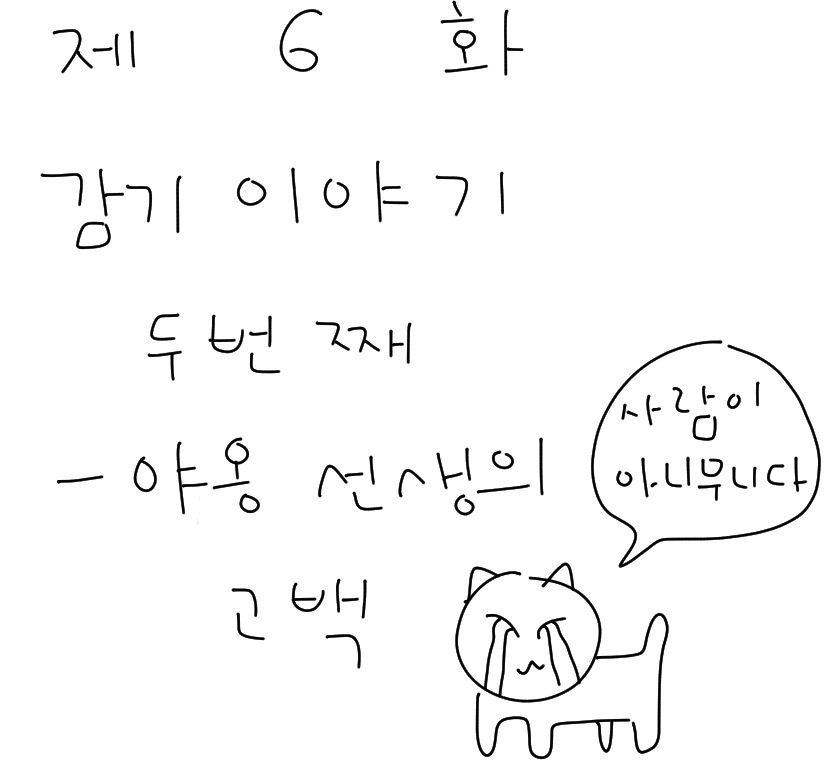 제 6 화
감기 이야기
두번째
- 야옹 선생의
고백
사람이
아니무니다